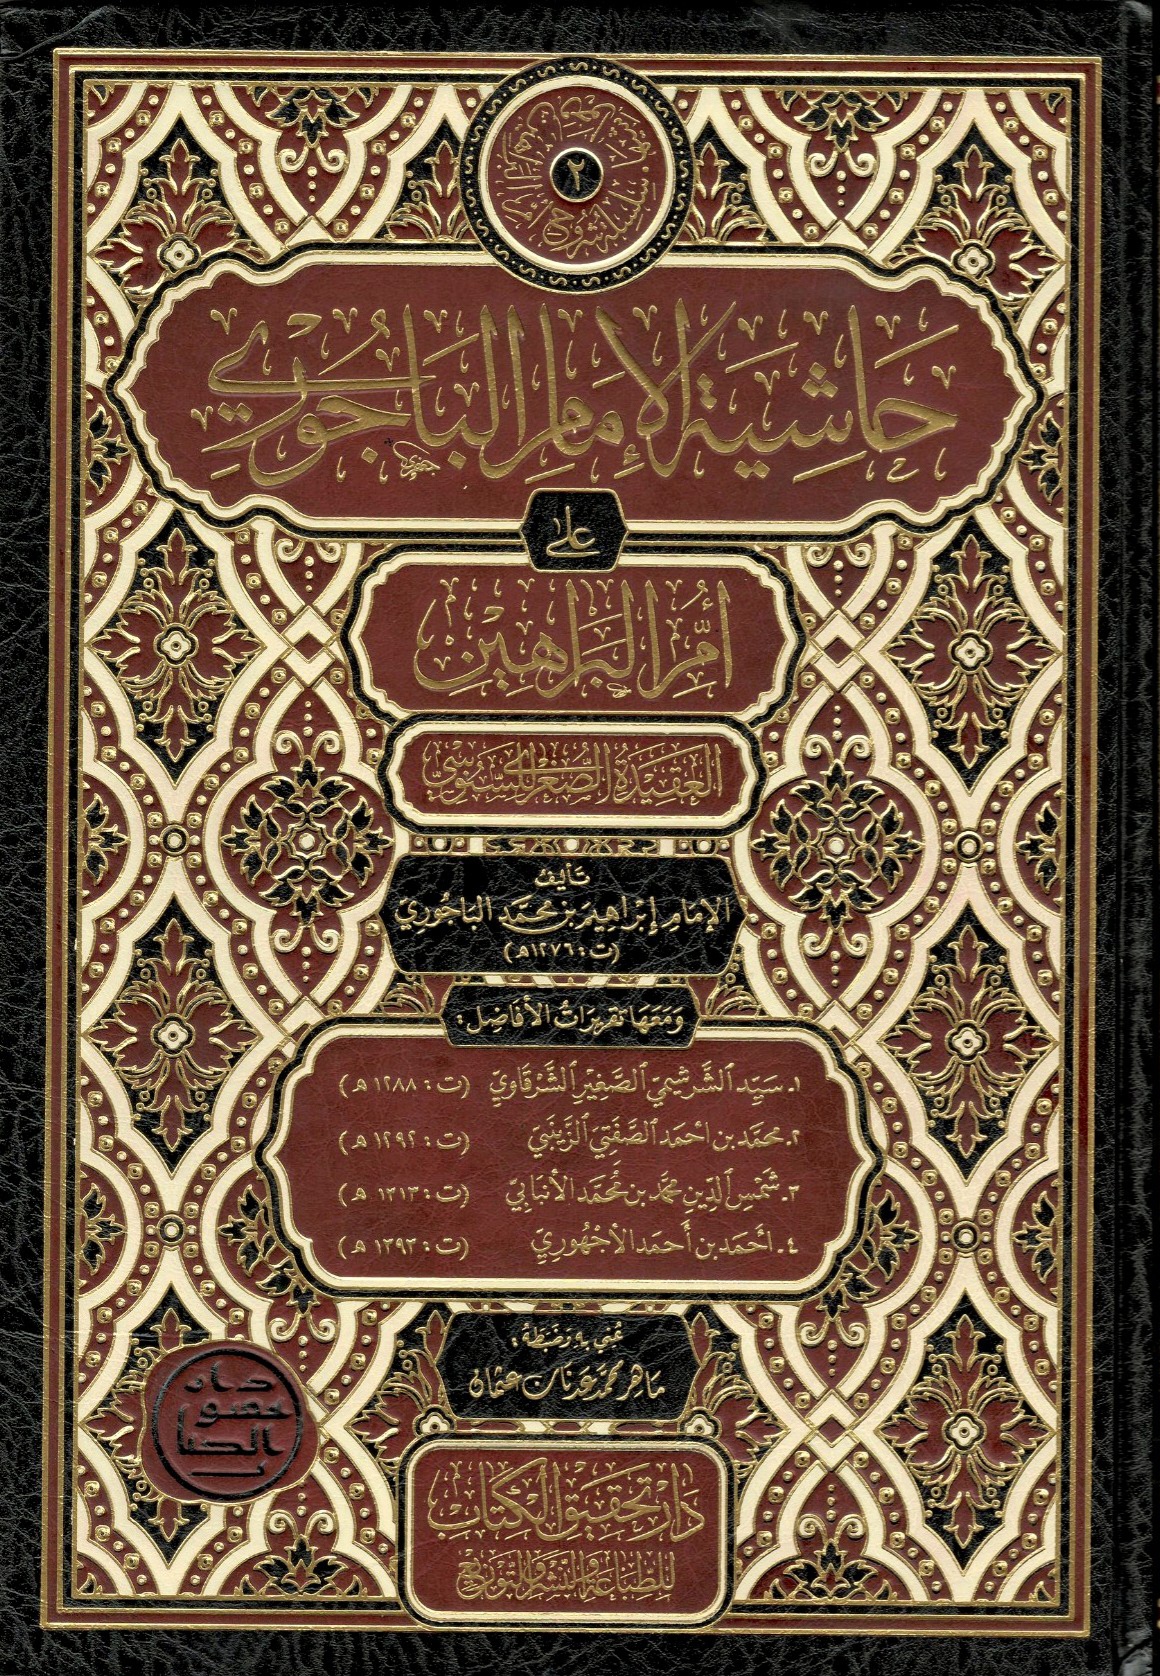 سلسلة شروح أم البراهين
٢
حَاشِيَةُ الإِمَامِ البَاجُورِي
على
أُمِّ البَرَاهِيْنِ
العَقِيدَةُ الصُّغْرَى لِلسَّنُوسِيِّ
تَأليفُ
الإمَامِ إبْرَاهِيمَ بنِ محمَّد البَاجُوريّ
(ت: ١٢٧٦هـ)
وَمَعَهَا تقريرَاتُ الأفَاضِل:
١. سَيِّد الشَّرشِيميّ الصَّغِيْرِ الشَّرقَاوِيّ (ت: ١٢٨٨ هـ)
٢. محمَّد بن أحمَد الصَّفتِي الزَّينَبيّ (ت: ١٢٩٢ هـ)
٣. شَمْسِ الدِّينِ محمَّد بن مُحمَّد الأنبَابِيّ (ت: ١٣١٣ هـ)
٤. أحَمد بن أَحمَد الأجْهُورِيّ (ت: ١٢٩٣ هـ)
عُنِي به وَضبَطهُ:
مَاهِر محمَّد عَدنَان عثمان
دَارُ تحقيق الكتَاب
للطباعة والنشر والتوزيع